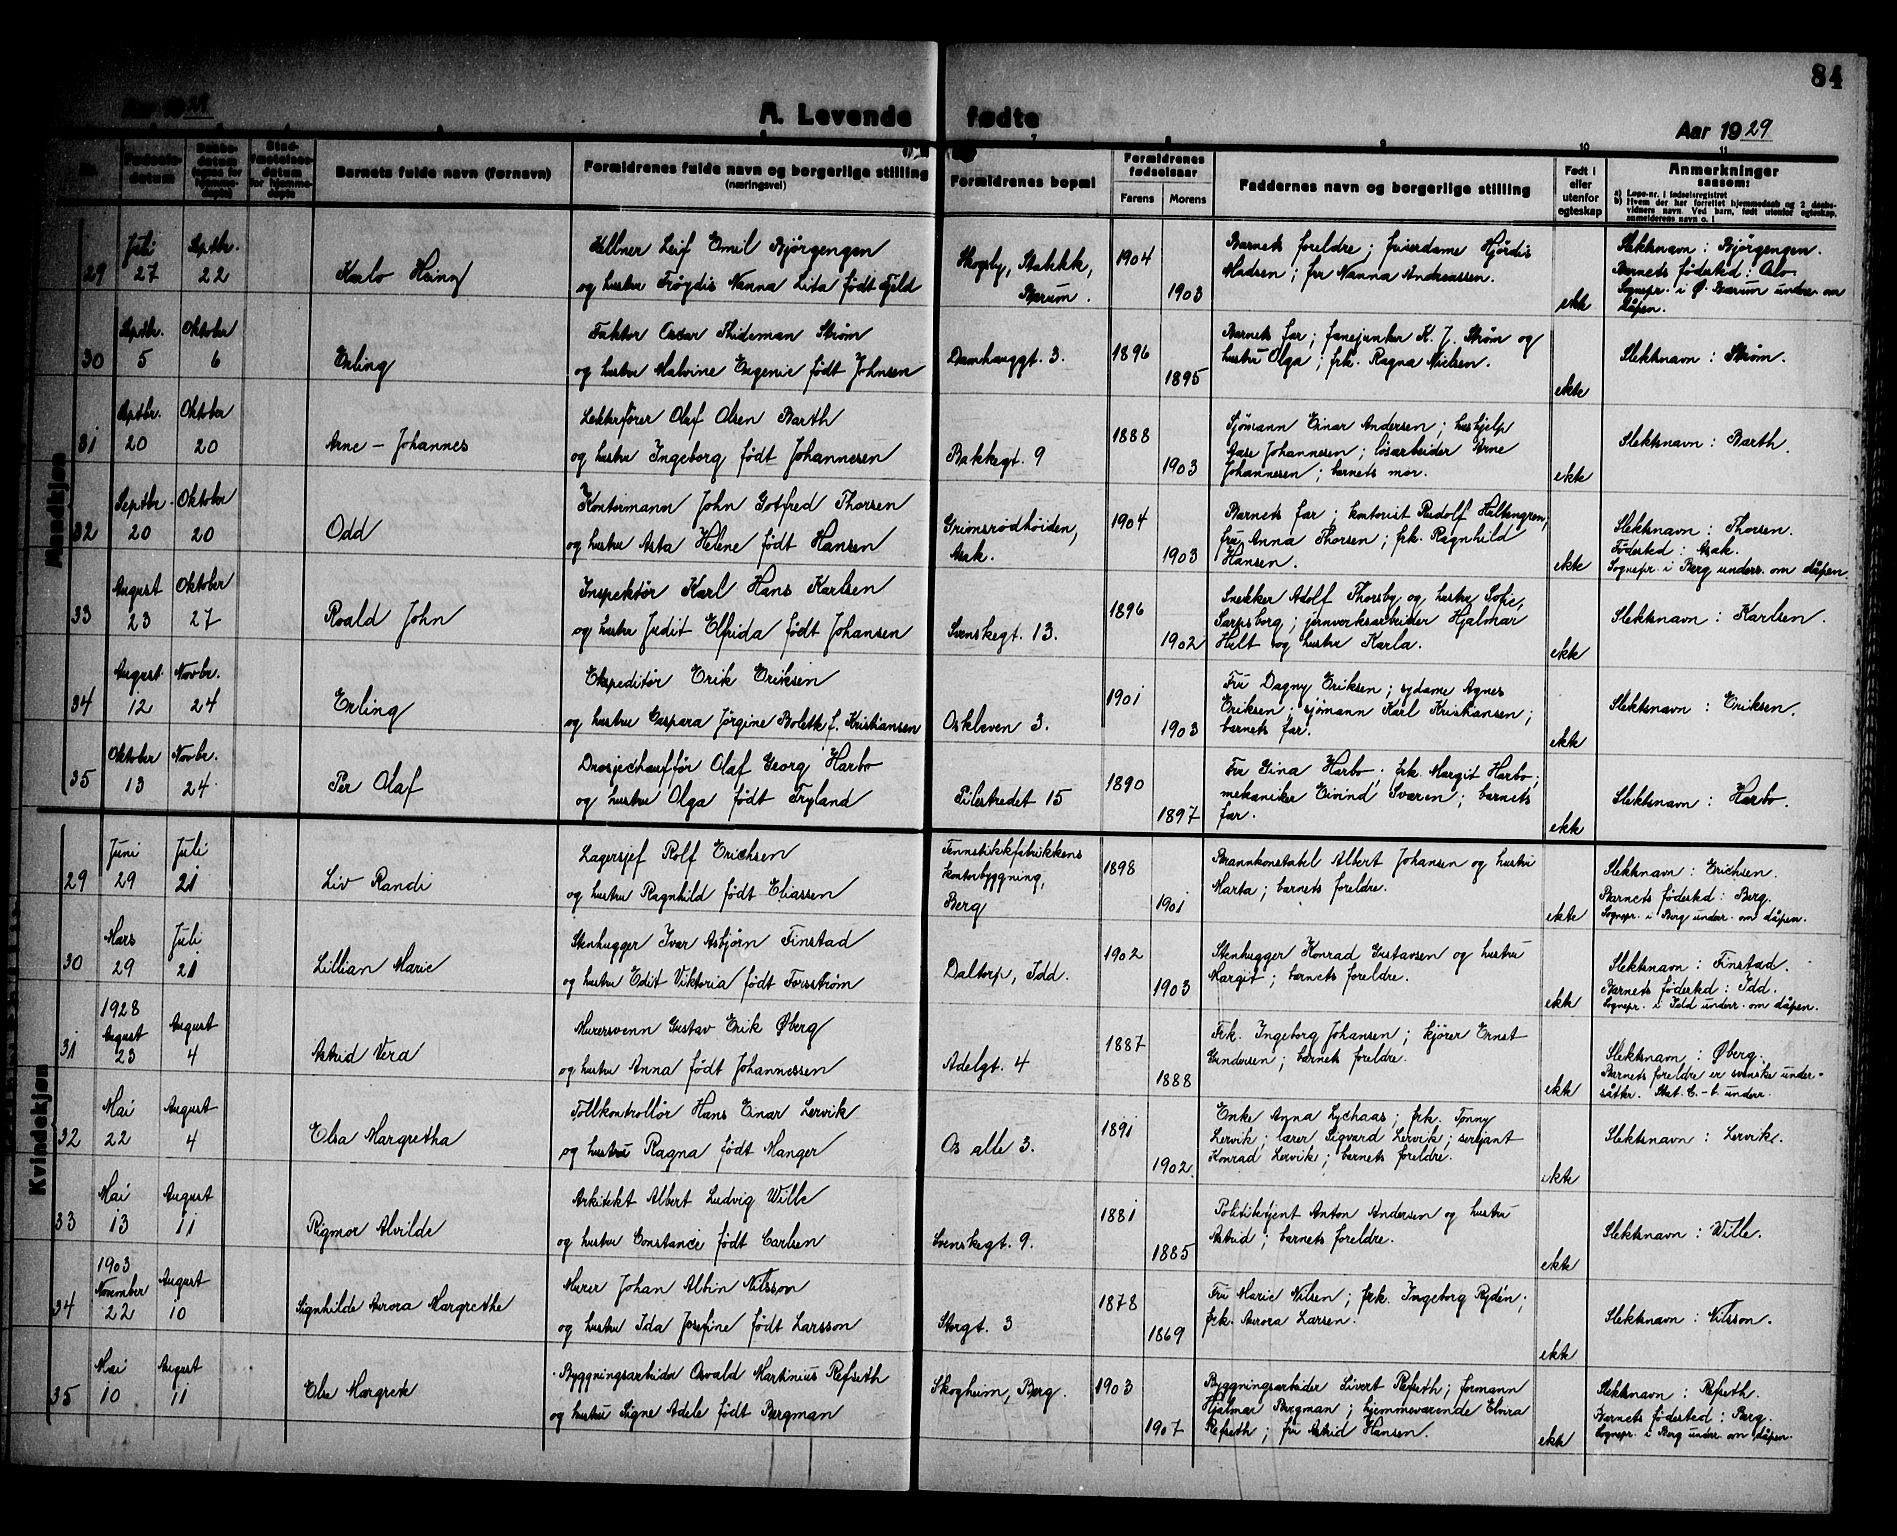 84
Aar 1929
A. Levende fødte
Aar 1929
Nr.
Fødsels-
datum
Daabs-
datum
Barnets fulde navn (fornavn)
Formidrenes fulde navn og borgerlige stilling
(næringsvei)
Formidrenes bopæl
Formidrenes
fødselsaar
Farens Morens
Faddernes navn og borgerlige stilling
Født i
eller
utenfor
egteskap
Anmerkninger
saasom:
a) Løpe-nr. i fødselsregistret
b) Hvem der har forrettet hjemmedaab og 2 daabs-
vidners navn. Ved barn, født utenfor egteskap,
anmelderens navn o. l.
Mandkjøn
29
Juli
27
Septbr.
22
Karlo Heiny
Kellner Leif Emil Bjørgengen
og hustru Frøydis Nanna Lita født Fjeld
Skogsby, Stabekk,
Bærum.
1904
1903
Barnets foreldre; friserdame Hjørdis
Madsen; fru Nanna Andreassen.
ekte
Slektsnavn: Bjørgengen.
Barnets fødested: Oslo.
Sognepr. i Ø. Bærum underr. om
dåpen.
30
Septbr.
5
Oktober
6
Erling
Faktor Oscar Thideman Strøm
og hustru Malvine Eugenie født Johnsen
Damhauggt. 3.
1896
1895
Barnets far; fanejunker K. J. Strøm og
hustru Olga; frk. Ragna Nielsen.
ekte
Slektsnavn: Strøm.
31
Septbr.
20
Oktober
20
Arne - Johannes
Lekterfører Olaf Olsen Barth
og hustru Ingeborg født Johannesen
Bakkegt. 9
1888
1903
Sjømann Einar Andersen; hushjelp
Aase Johannesen; løsarbeider Arne
Johannesen; barnets mor.
ekte
Slektsnavn: Barth.
32
Septbr.
20
Oktober
20
Odd
Kontormann John Gotfred Thorsen
og hustru Asta Helene født Hansen
Grimsrødhøiden,
Asak.
1904
1903
Barnets far; kontorist Rudolf Heltengren,
fru Anna Thorsen; frk. Ragnhild
Hansen.
ekte
Slektsnavn: Thorsen.
Fødested: Asak.
Sognepr. i Berg underr. om dåpen.
33
August
23
Oktober
27
Roald John
Inspektør Karl Hans Karlsen
og hustru Judit Elfrida født Johansen
Svenskegt. 13.
1896
1902
Snekker Adolf Thorsby og hustru Sofie,
Sarpsborg; jernverksarbeider Hjalmar
Helt og hustru Karla.
ekte
Slektsnavn: Karlsen.
34
August
12
Novbr.
24
Erling
Ekspeditør Erik Eriksen
og hustru Caspara Jørgine Bolette f. Kristiansen
Oskleven 3.
1901
1903
Fru Dagny Eriksen; sydame Agnes
Eriksen; sjømann Karl Kristiansen;
barnets far.
ekte
Slektsnavn: Eriksen.
35
Oktober
13
Novbr.
24
Per Olaf
Drosjechauffør Olaf Georg Harbo
og hustru Olga født Tryland
Pilestredet 15
1890
1897
Fru Gina Harbo; frk. Margit Harbo;
mekaniker Eivind Svaren; barnets
far.
ekte
Slektsnavn: Harbo.
Kvindekjøn
29
Juni
29
Juli
21
Liv Randi
Lagersjef Rolf Erichsen
og hustru Ragnhild født Eliassen
Fennstikkfabrikkens
kontorbyggning,
Berg
1898
1901
Brannkonstabel Albert Johansen og hustru
Marta; barnets foreldre.
ekte
Slektsnavn: Erichsen.
Barnets fødested: Berg.
Sognepr. i Berg underr. om dåpen.
30
Mars
29
Juli
21
Lillian Marie
Stenhugger Ivar Asbjørn Finstad
og hustru Edit Viktoria født Forsstrøm
Daltorp, Idd.
1902
1903
Stenhugger Konrad Gustavsen og hustru
Margit; barnets foreldre.
ekte
Slektsnavn: Finstad.
Barnets fødested: Idd.
Sognepr. i Idd underr. om dåpen.
31
1928
August
23
August
4
Astrid Vera
Murersvenn Gustav Erik Øberg
og hustru Anna født Johannessen
Adelgt. 4
1887
1888
Frk. Ingeborg Johansen; kjører Ernst
Gundersen; barnets foreldre.
ekte
Slektsnavn: Øberg.
Barnets foreldre er svenske under-
såtter. Stat. C.-b. underr.
32
Mai
22
August
4
Elsa Margretha
Tollkontrollør Hans Einar Lervik
og hustru Ragna født Manger
Os alle 3.
1891
1902
Enke Anna Lychaas; frk. Tonny
Lervik; lærer Sigvard Lervik; serjant
Konrad Lervik; barnets foreldre.
ekte
Slektsnavn: Lervik.
33
Mai
13
August
11
Rigmor Alvilde
Arkitekt Albert Ludvig Wille
og hustru Constance født Carlsen
Svenskegt. 9.
1881
1885
Politibetjent Anton Andersen og hustru
Astrid; barnets foreldre.
ekte
Slektsnavn: Wille.
34
1903
November
22
August
10
Signhilde Aurora Margrethe
Murer Johan Albin Nilsson
og hustru Ida Josefine født Larsson
Storgt. 3
1878
1869
Fru Marie Nilsen; frk. Ingeborg Rydén;
frk. Aurora Larsen.
ekte
Slektsnavn: Nilsson.
35
Mai
10
August
11
Else Margrete
Byggningsarbeider Osvald Martinius Refseth
og hustru Signe Adele født Bergman
Skogheim, Berg.
1903
1907
Byggningsarbeider Sivert Refseth; formann
Hjalmar Bergman; hjemmeværende Elvira
Refseth; fru Astrid Hansen.
ekte
Slektsnavn: Refseth.
Barnets fødested: Berg.
Sognepr. i Berg underr. om dåpen.